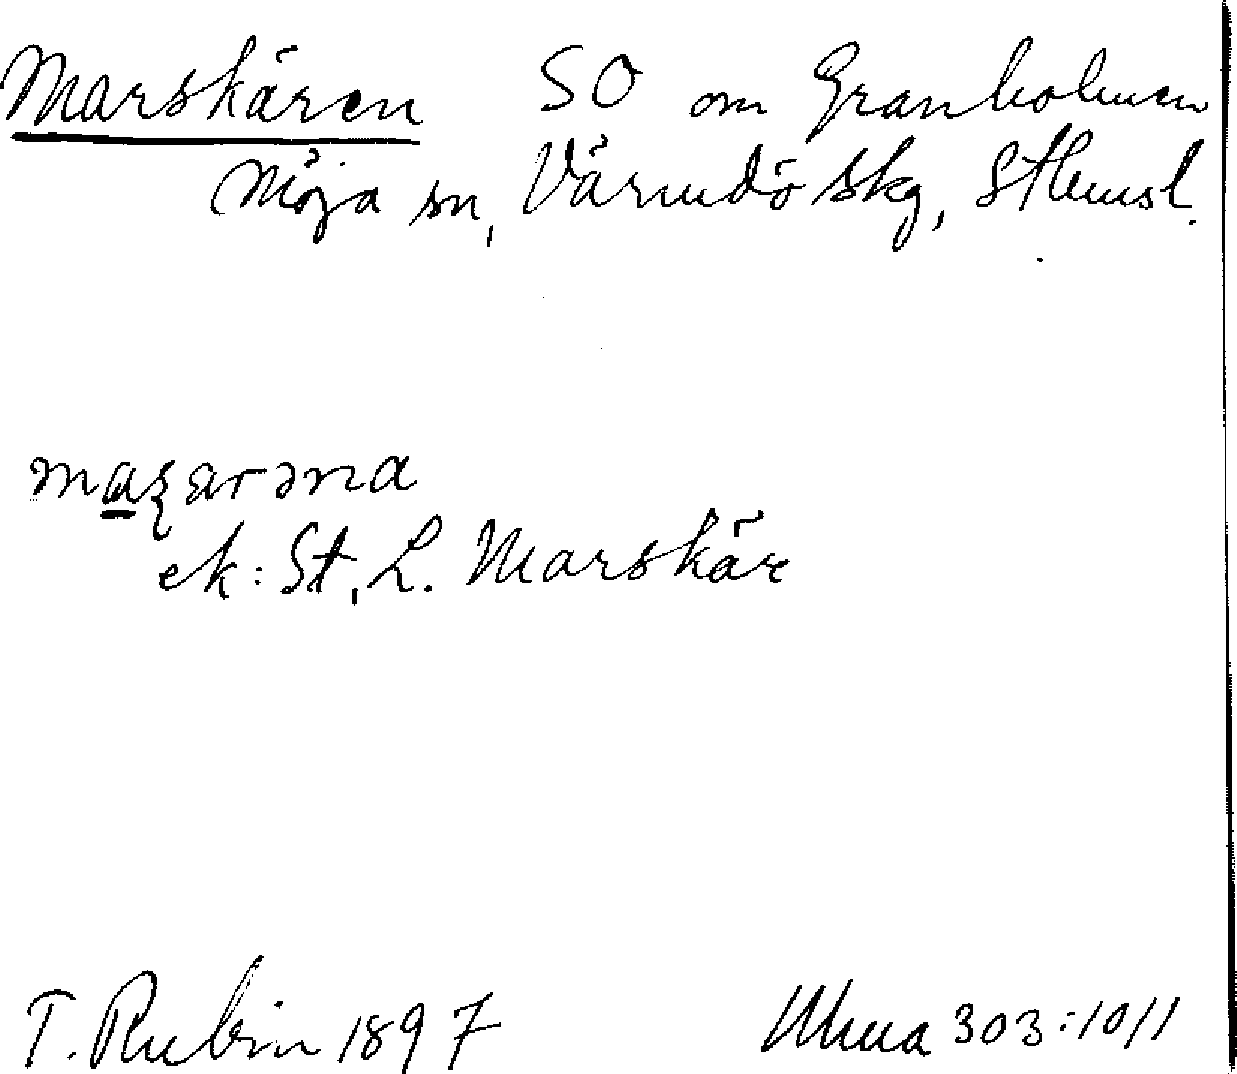 Marskären SO om Granholmen
Möja sn, Värmdö skg, Sthmsl.
ek: St, L. Marskär
T. Rubin 1897 303:10/1